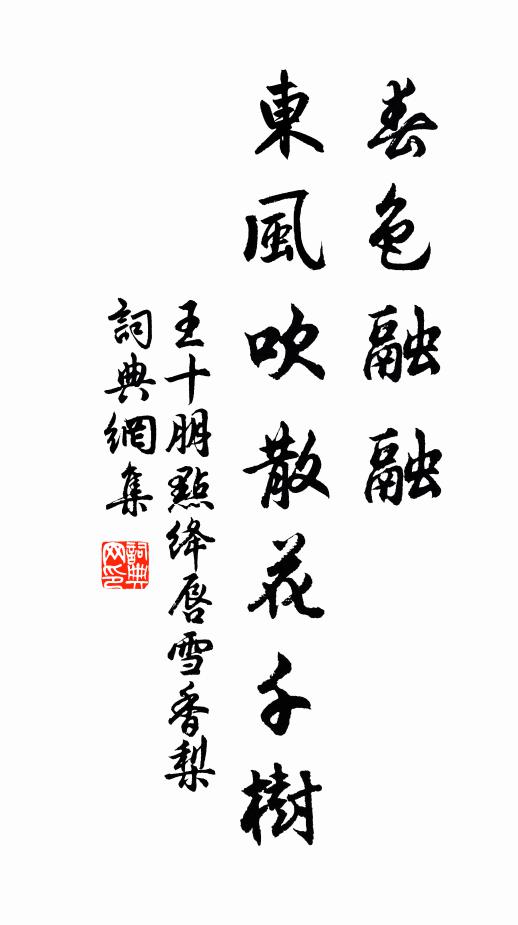 春色融融
東風吹散花千樹
王十朋點絳唇雪香梨
詞典網集
詞典網印